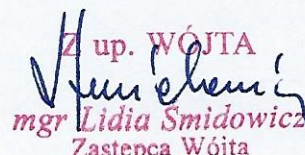 Z up. WÓJTA
mgr Lidia Smidowicz
Zastępca Wójta